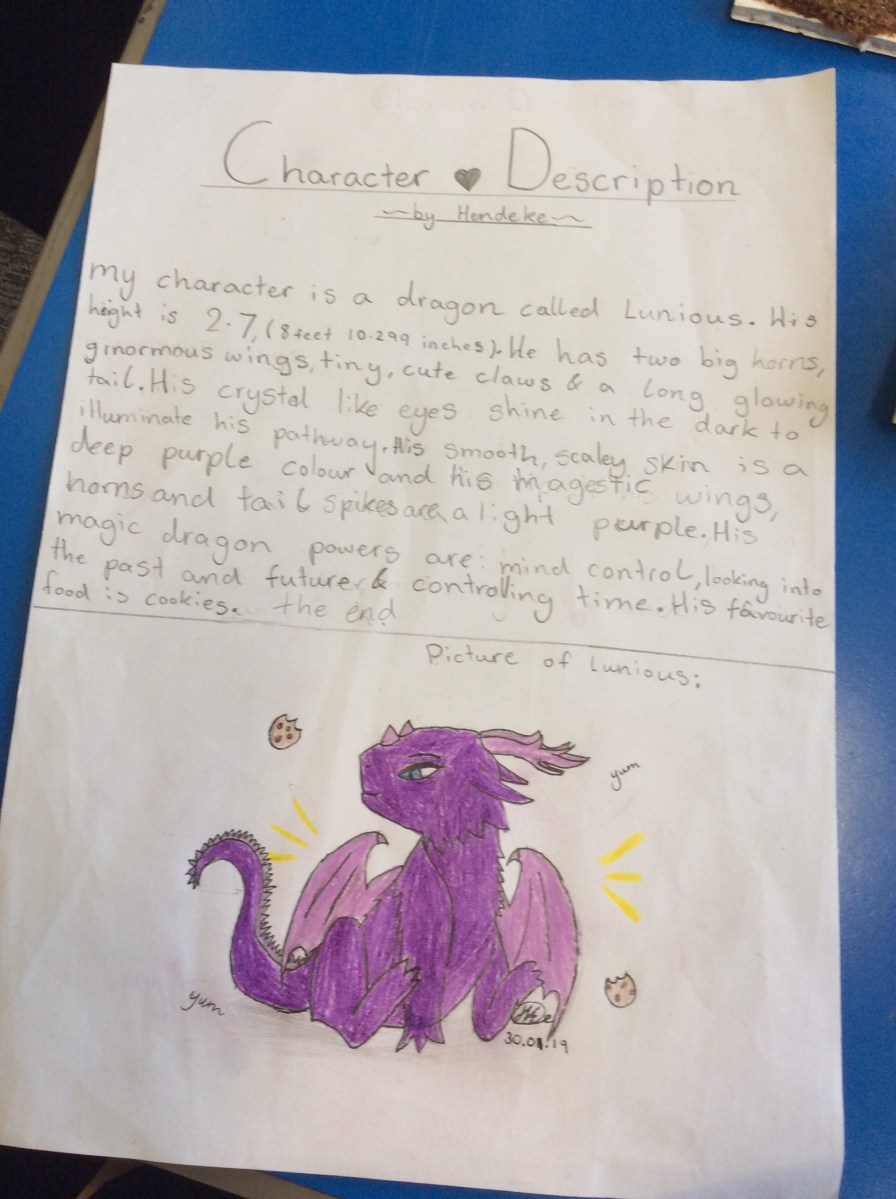 Character ♥ Description
~by Hendeke~
My character is a dragon called Lunious. His
height is 2.7, (8 feet 10.299 inches). He has two big horns,
ginormous wings, tiny, cute claws & a long glowing
tail. His crystal like eyes shine in the dark to
illuminate his pathway. His smooth, scaley skin is a
deep purple colour and his magestic wings,
horns and tail spikes are a light purple. His
magic dragon powers are: mind control, looking into
the past and future & controlling time. His favourite
food is cookies. the end
Picture of Lunious:
yum
yum
30.01.19